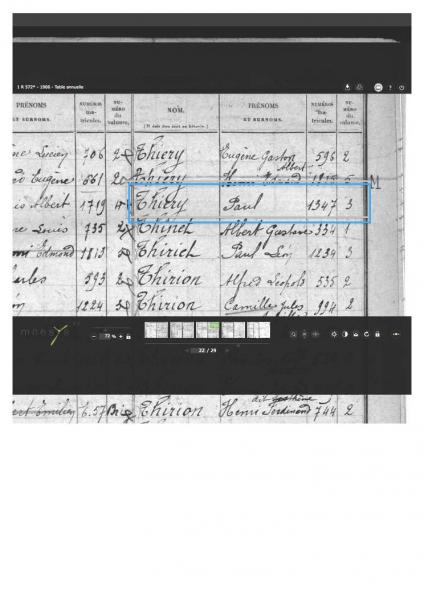 1 R 572* - 1906 - Table annuelle
PRÉNOMS ET SURNOMS. NUMÉROS ma-tricules. NU-MÉRO du volume. NOM. PRÉNOMS ET SURNOMS. NUMÉROS ma-tricules. NU-MÉRO du volume.
Lucien 706 2 Thiéry Eugène Gaston 596 2
Albert
Eugène 661 2 Thiéry
Albert 1719 4 Thiéry Paul 1347 3
Louis 735 2 Thinet Albert Gustave 334 1
Edmond 1813 5 Thirich Paul Léon 1234 3
593 2 Thirion Alfred Léopold 535 2
1224 3 Thirion Camille Jules 994 2
mnesys
72 %
22 / 29
dit
Emilien 657 Thirion Henri Ferdinand 744 2